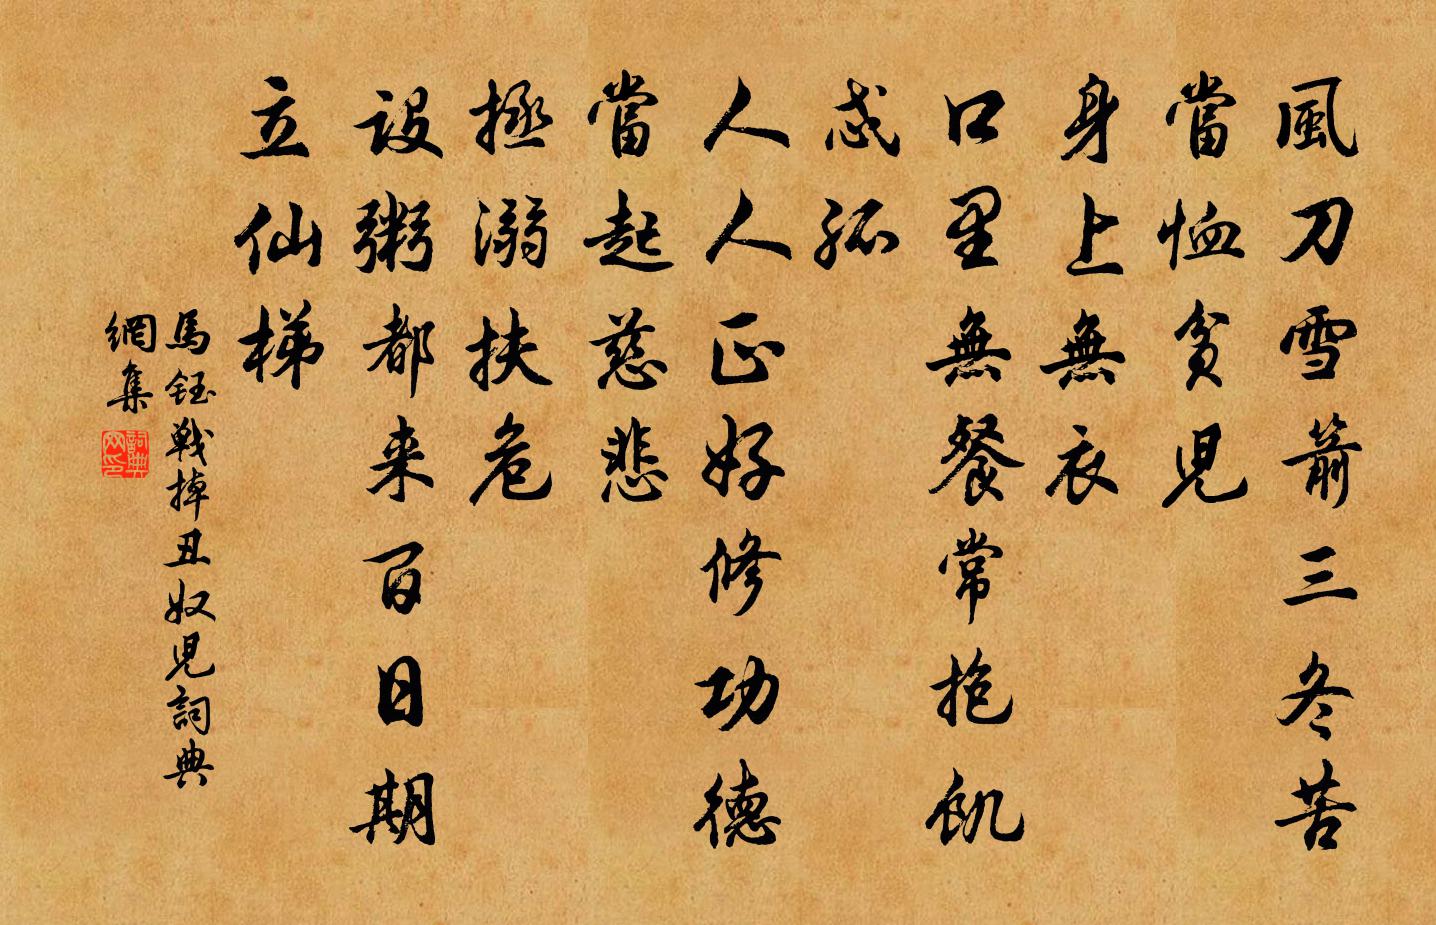 風刀雪箭三冬苦
當恤貧児
身上無衣
口里無餐常抱飢
忒孤
人人正好修功德
當起慈悲
拯溺扶危
設粥都来百日期
立仙梯
馬鈺戰掉丑奴児詞典
網集
詞典
网印